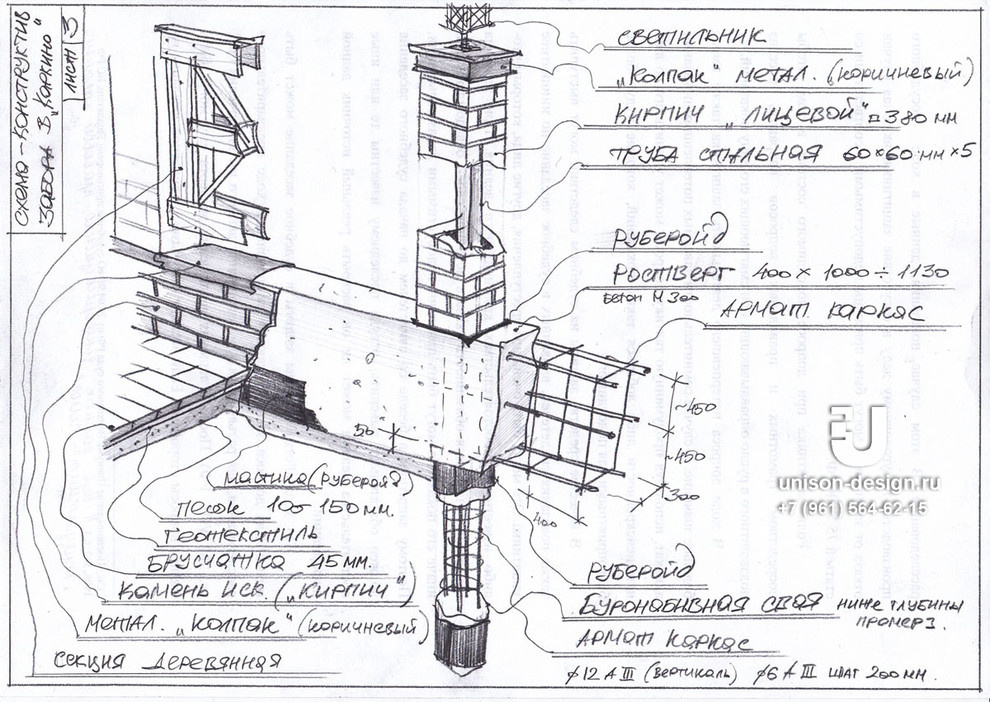 Схема-конструктив
забора в „Кокино"
лист 3
светильник
„Колпак" метал. (коричневый)
кирпич „лицевой" □ 380 мм
труба стальная 60×60 мм × 5
рубероид
Ростверг 400 × 1000 ÷ 1130
бетон М 300
Армат каркас
~450
~450
300
400
50
unison-design.ru
+7 (961) 564-62-15
мастика (рубероид)
песок 100 150 мм.
Геотекстиль
Брусчатка 45 мм.
Камень иск. („кирпич")
метал. „Колпак" (коричневый)
секция деревянная
рубероид
Буронабивная свая ниже глубины
промерз.
Армат каркас
⌀12 А III (вертикаль) ⌀6 А III шаг 200 мм.